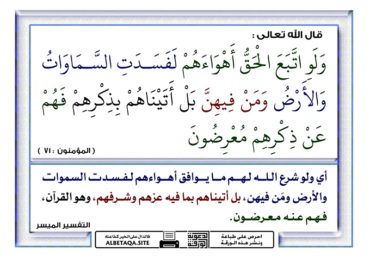 قال الله تعالى :
وَلَوِ اتَّبَعَ الْحَقُّ أَهْوَاءَهُمْ لَفَسَدَتِ السَّمَاوَاتُ
وَالْأَرْضُ وَمَنْ فِيهِنَّ بَلْ أَتَيْنَاهُمْ بِذِكْرِهِمْ فَهُمْ
عَنْ ذِكْرِهِمْ مُعْرِضُونَ
( المؤمنون : ٧١ )
أي ولو شرع الله لهم ما يوافق أهواءهم لفسدت السموات
والأرض ومَن فيهن، بل أتيناهم بما فيه عزهم وشرفهم، وهو القرآن،
فهم عنه معرضون.
التفسير الميسر
احرص على طباعة
ونشر هذه الورقة
فالدال على الخير كفاعله
ALBETAQA.SITE